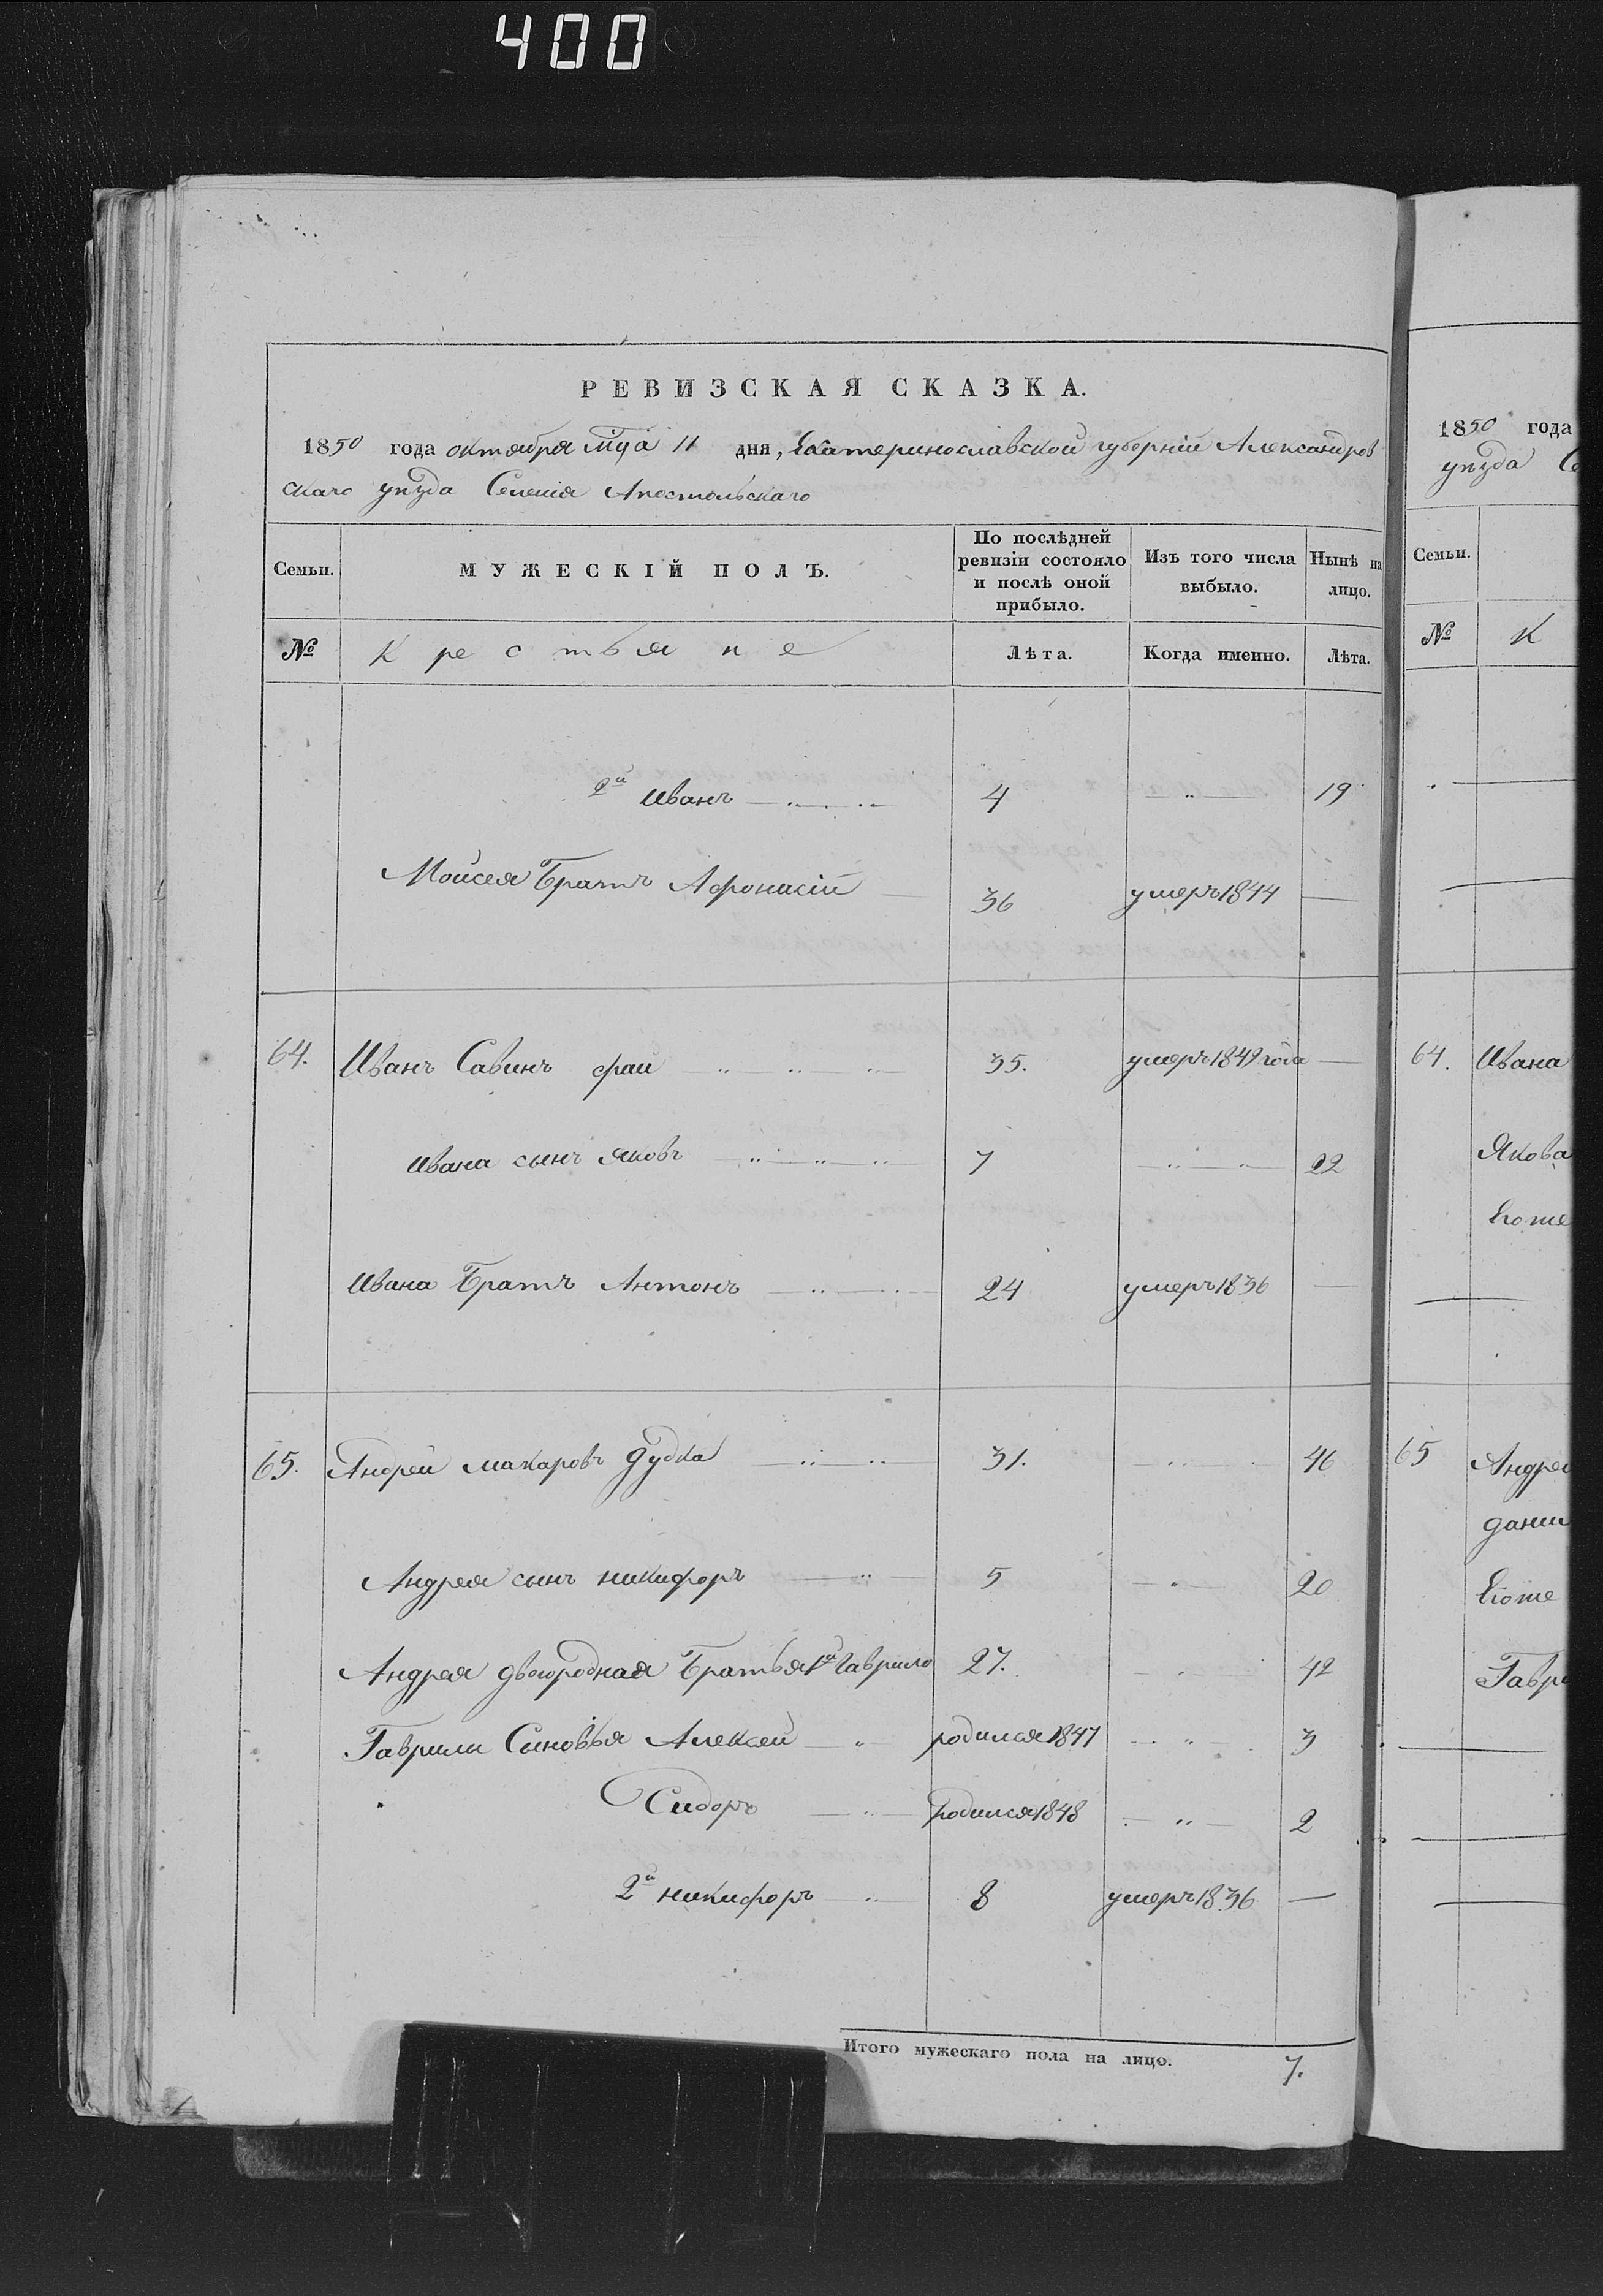 400
РЕВИЗСКАЯ СКАЗКА.
1850 года октября мца 11 дня, Екатеринославской губернии Александров
скаго уезда Селения Апостольскаго
Семьи.
МУЖЕСКІЙ ПОЛЪ.
По послѣдней ревизіи состояло и послѣ оной прибыло.
Изъ того числа выбыло.
Нынѣ на лицо.
№ Крестьяне Лѣта. Когда именно. Лѣта.
2й Иванъ 4 19
Мойсея Братъ Афонасій 36 умеръ 1844
64. Иванъ Савинъ 35. умеръ 1849 года
Ивана сынъ Яковъ 7 22
Ивана Братъ Антонъ 24 умеръ 1836
65. Андрей Макаровъ Дудка 31. 46
Андрея сынъ Никифоръ 5 20
Андрея двоюродная Братья 1й Гаврило 27. 42
Гаврили Сыновья Алексей родился 1847 3
Сидоръ родился 1848 2
2й Никифоръ 8 умеръ 1836
Итого мужескаго пола на лицо. 7.
1850 года
уезда Се
Семьи.
№ К
64. Ивана
Якова
65 Андрея
Гаври